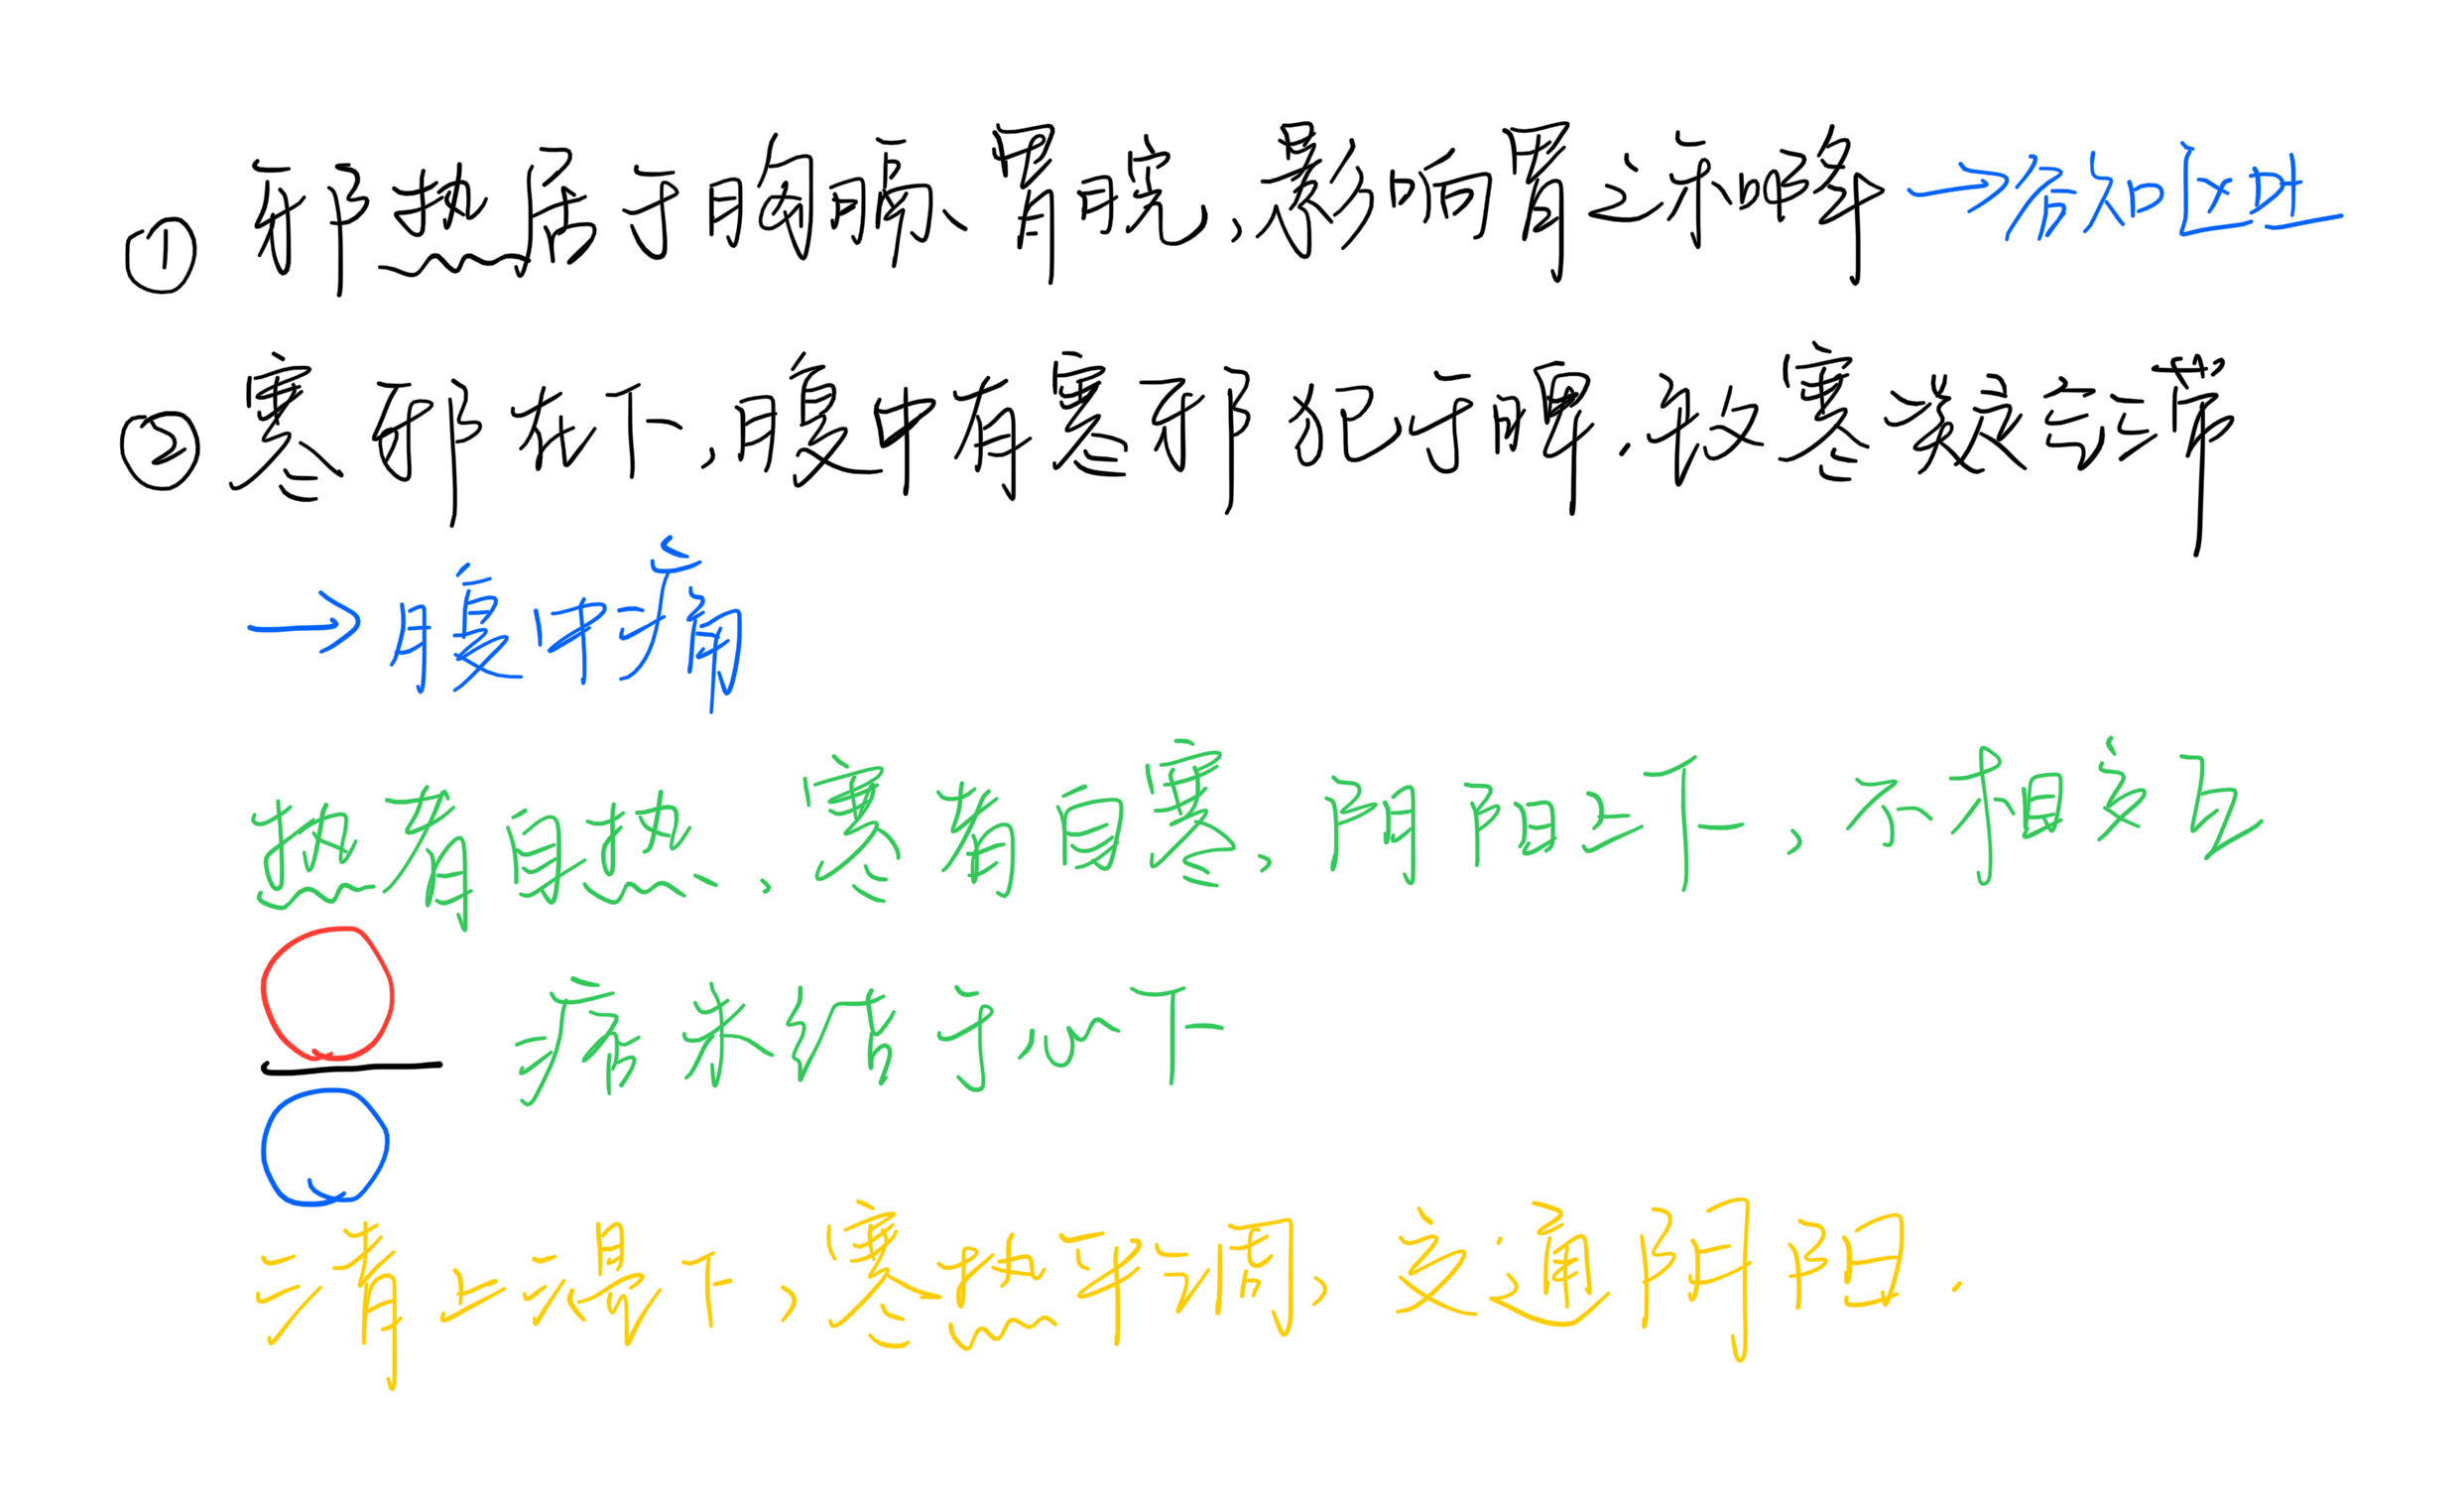 ① 邪热居于胸膈、胃脘,影响胃之和降→欲呕吐
② 寒邪在下,腹中有寒邪犯于脾.故寒凝气滞
→腹中痛
热者自热,寒者自寒,阴阳上下,不相交互
病未结于心下
清上温下,寒热平调,交通阴阳.